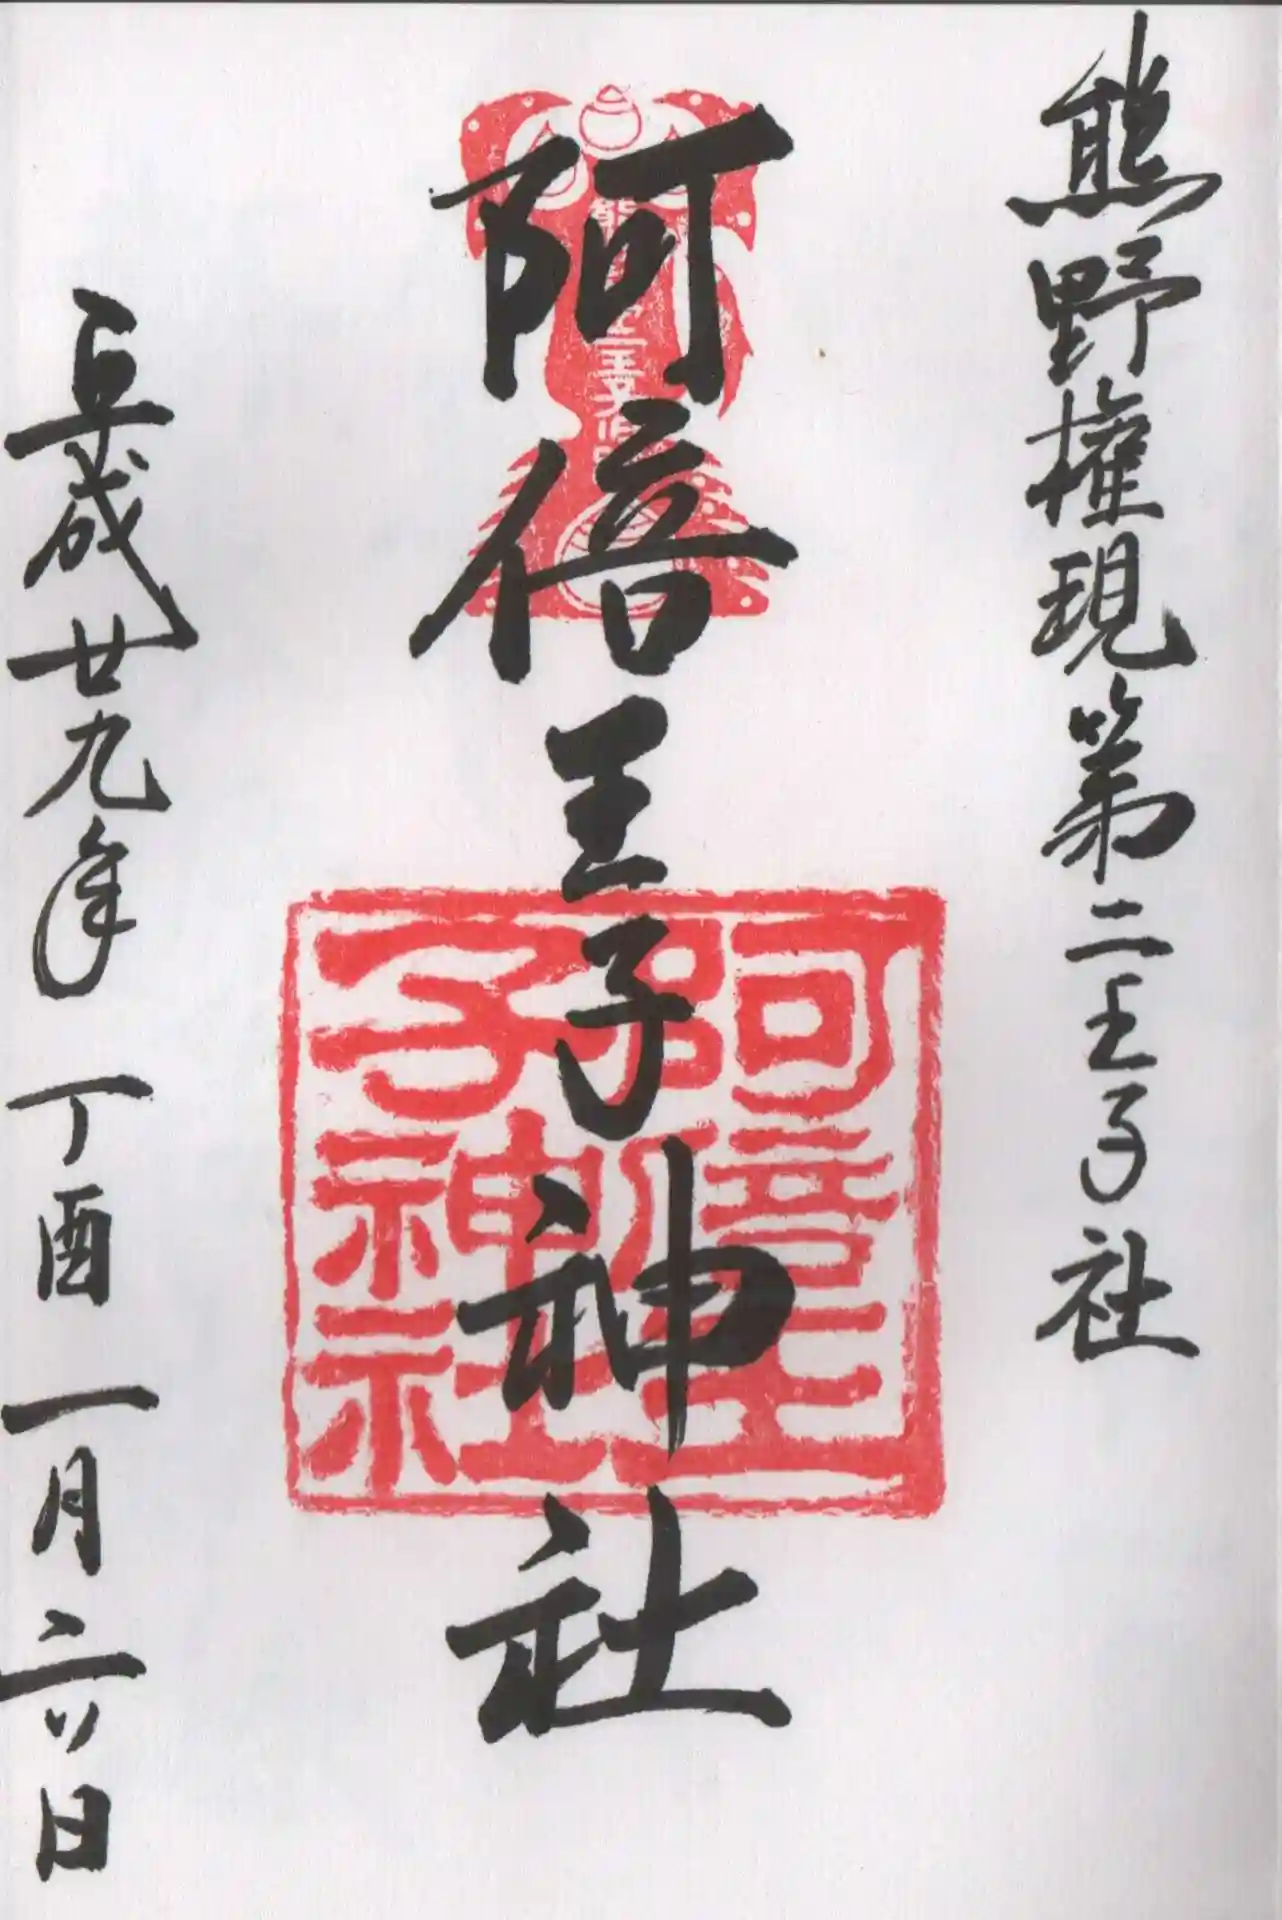 熊野権現第二王子社
阿倍王子神社
阿倍王子神社
平成廿九年 丁酉 一月六日